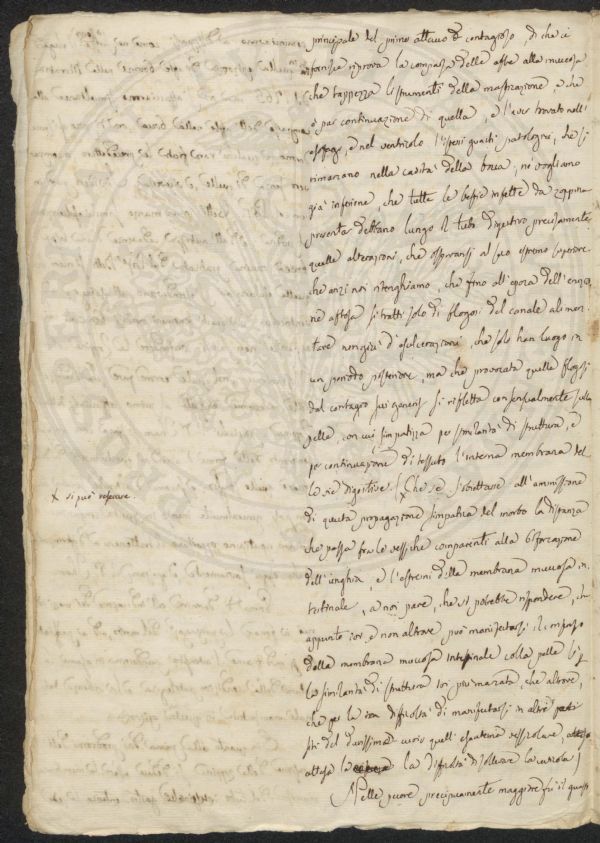 principale del primo attacco è contagioso, di che ci
fornisce riprova la comparsa delle afte alla mucosa
che tappezza li strumenti della masticazione, e che
è per continuazione di quella, e l'aver trovato nell'
esofago, e nel ventricolo l'istessi guasti patologici, che si
rimarcano nella cavità della bocca, nè vogliamo
già inferirne, che tutte le bestie infette da zoppina
presentar debbano lungo il tubo digestivo precisamente
quelle alterazioni, che osservansi al suo estremo superiore
che anzi noi ritenghiamo, che fino all'epoca dell'eruzio
ne aftosa si tratti solo di flogosi del canale alimen
tare non già d'esulcerazioni, che solo han luogo in
un periodo posteriore, ma che provocata quella flogosi
dal contagio sui generis si rifletta consensualmente sulla
pelle, con cui simpatizza per similarità di struttura, e
per continuazione di tessuto l'interna membrana del
le vie digestive. (x Che se s'obiettasse all'ammissione
x si può resecare.
di questa propagazione simpatica del morbo la distanza
che passa fra le vessiche comparenti alla biforcazione
dell'unghia, e l'estremi della membrana mucosa in
testinale, a noi pare, che si potrebbe rispondere, che
appunto ivi, e non altrove può manifestarsi il consenso
della membrana mucosa intestinale colla pelle, sì
la similarità di struttura ivi più marcata, che altrove,
che per la somma difficoltà di manifestarsi in altre parti
del durissimo cuoio quell'esantema vessicolare
attesa la difficoltà di sollevare la cuticola)
Nelle pecore precipuamente maggiore fù il guasto